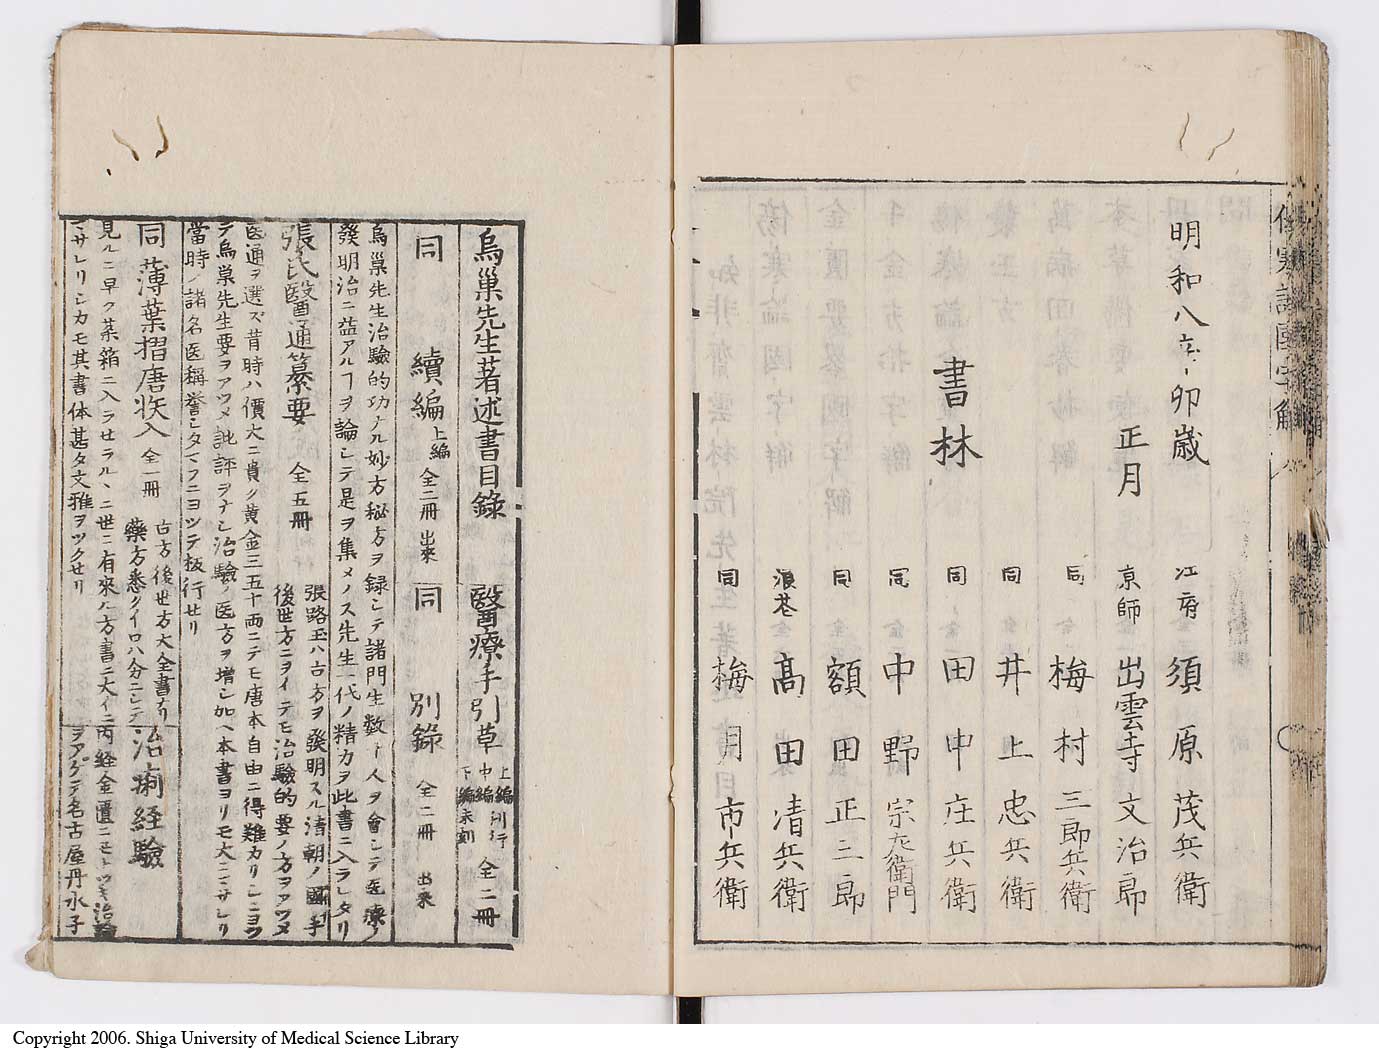 傷寒論國字解
明和八辛卯歳
正月
書林
江府 須原茂兵衛
京師 出雲寺文治郎
同 梅村三郎兵衛
同 井上忠兵衛
同 田中庄兵衛
同 中野宗左衛門
同 額田正三郎
浪花 高田清兵衛
同 梅月市兵衛
烏巢先生著述書目錄
醫療手引草 上編 中編 別行 下編 未刻 全二冊
同 續編 上編 全二冊 出來
同 別錄 全二冊 出來
烏巢先生治驗的功ノル妙方秘方ヲ録シテ諸門生数十人ヲ會シテ医療ノ
發明治ニ益アルヿヲ論シテ是ヲ集メノス先生一代ノ精力ヲ此書ニ入レタリ
張氏醫通纂要 全五冊
張路玉ハ古方ヲ發明スル清朝ノ國手
後世方ニヲイテモ治驗的要ノ方ヲアツメ
医通ヲ選ズ昔時ハ價大ニ貴ク黄金三五十両ニテモ唐本自由ニ得難カリシニヨツ
テ烏巢先生要ヲアツメ批評ヲナシ治驗ノ医方ヲ増シ加ヘ本書ヨリモ大ニマサレリ
當時ノ諸名医稱誉シタマフニヨツテ板行セリ
同 薄葉摺唐帙入 全一冊
古方後世方大全書ナリ
藥方悉クイロハ分ニシテ
見ルニ早ク薬箱ニ入ラセラル、ニ世ニ有來ル方書ニ大イニ
マサレリシカモ其書体甚タ文雅ヲツクセリ
治痢経驗
丙経金匱ニモトツキ治論
ヲアゲテ名古屋丹水子
Copyright 2006. Shiga University of Medical Science Library